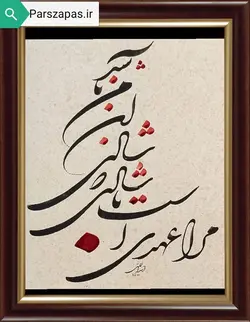 Parszapas.ir
مرا عهدی
ست با شادی
شادی
آن من
باشد